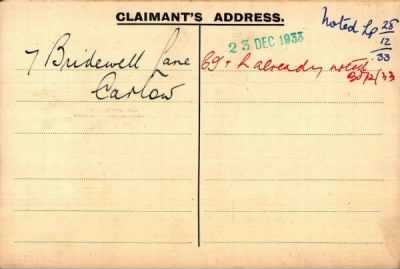 CLAIMANT'S ADDRESS.
7 Bridewell Lane
Carlow
23 DEC 1933
Noted
28/12/33
already noted
30/12/33